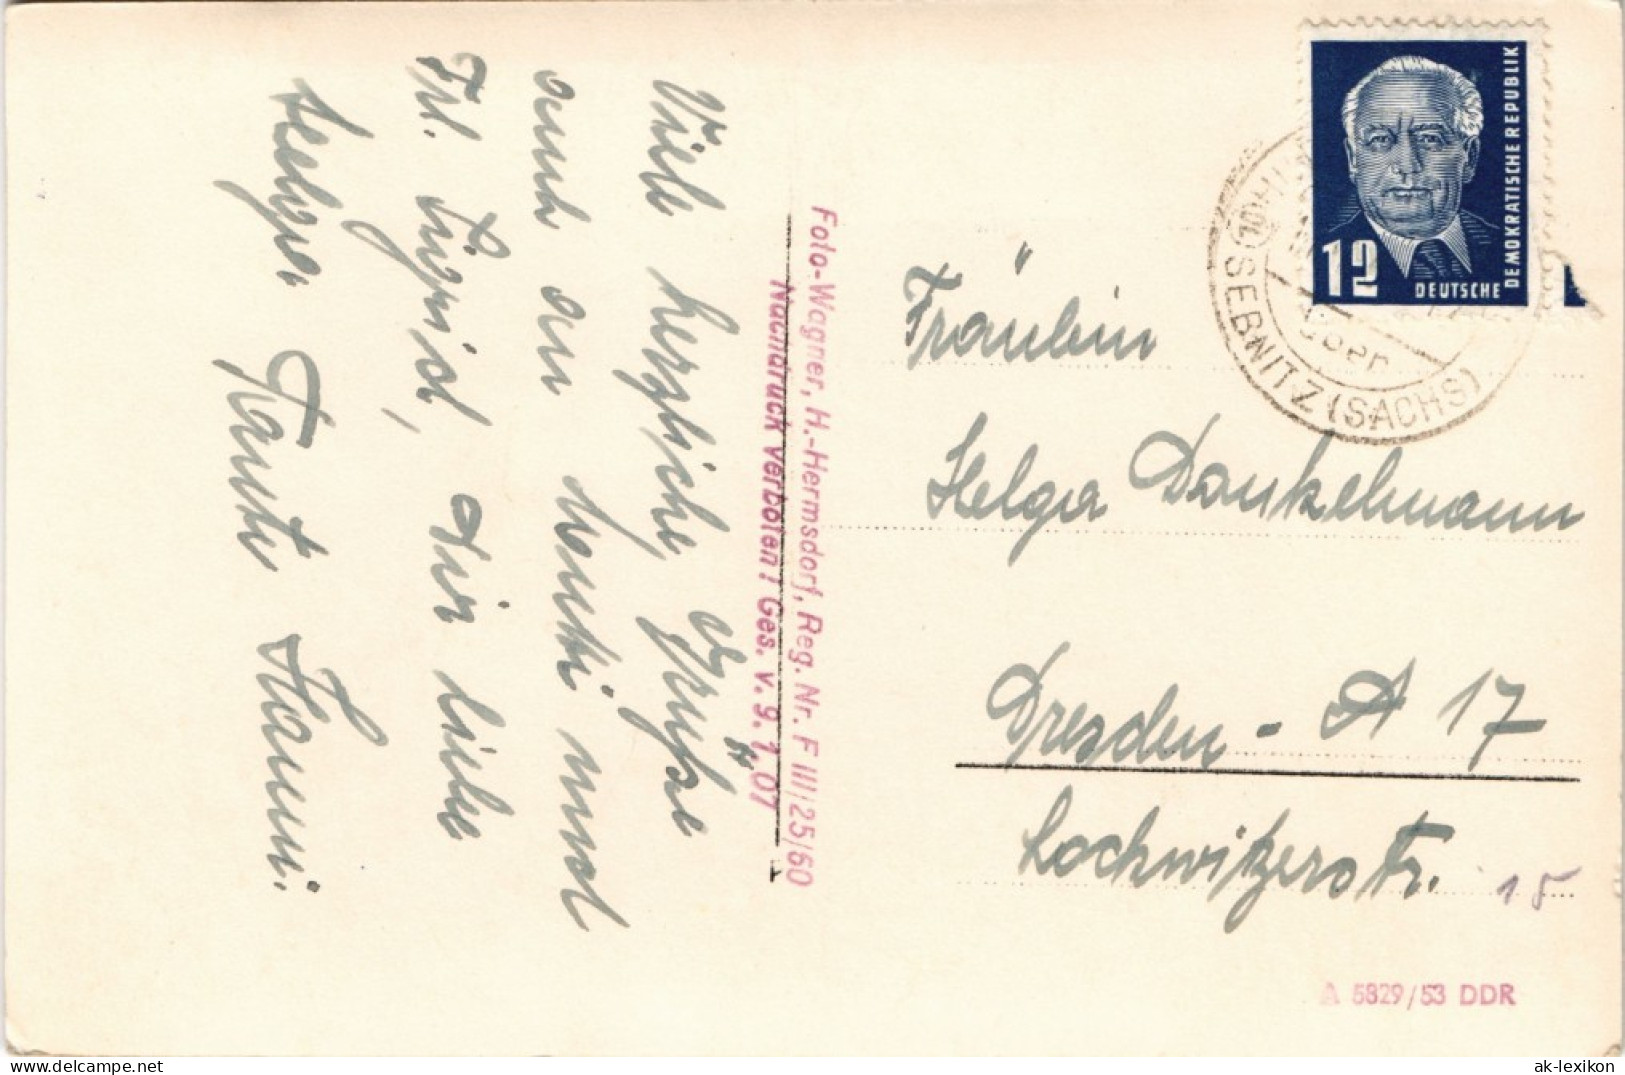 Viele herzliche Grüße
auch an Mutti und
Frl. Sigrid, Dir liebe
Helga Tante Hanni.
Foto-Wagner, H.-Hermsdorf, Reg. Nr. F III/25/60
Nachdruck verboten! Ges. v. 9.1.07
DEUTSCHE DEMOKRATISCHE REPUBLIK
12
SEBNITZ (SACHS)
über
Fräulein
Helga Dankelmann
Dresden - A 17
Lochwitzerstr. 15
A 5829/53 DDR
ak-lexikon